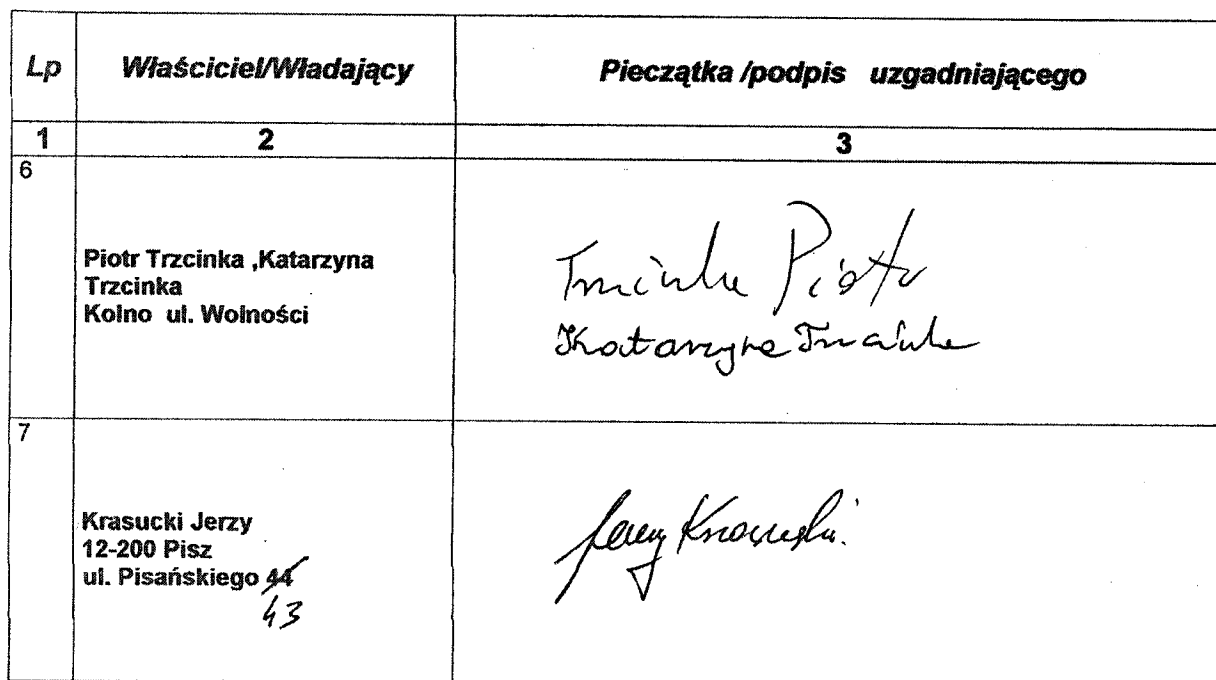 Lp Właściciel/Władający Pieczątka /podpis uzgadniającego
1 2 3
6
Piotr Trzcinka ,Katarzyna
Trzcinka
Kolno ul. Wolności
Trzcinka Piotr
Katarzyna Trzcinka
7
Krasucki Jerzy
12-200 Pisz
ul. Pisańskiego 44
43
Jerzy Krasucki